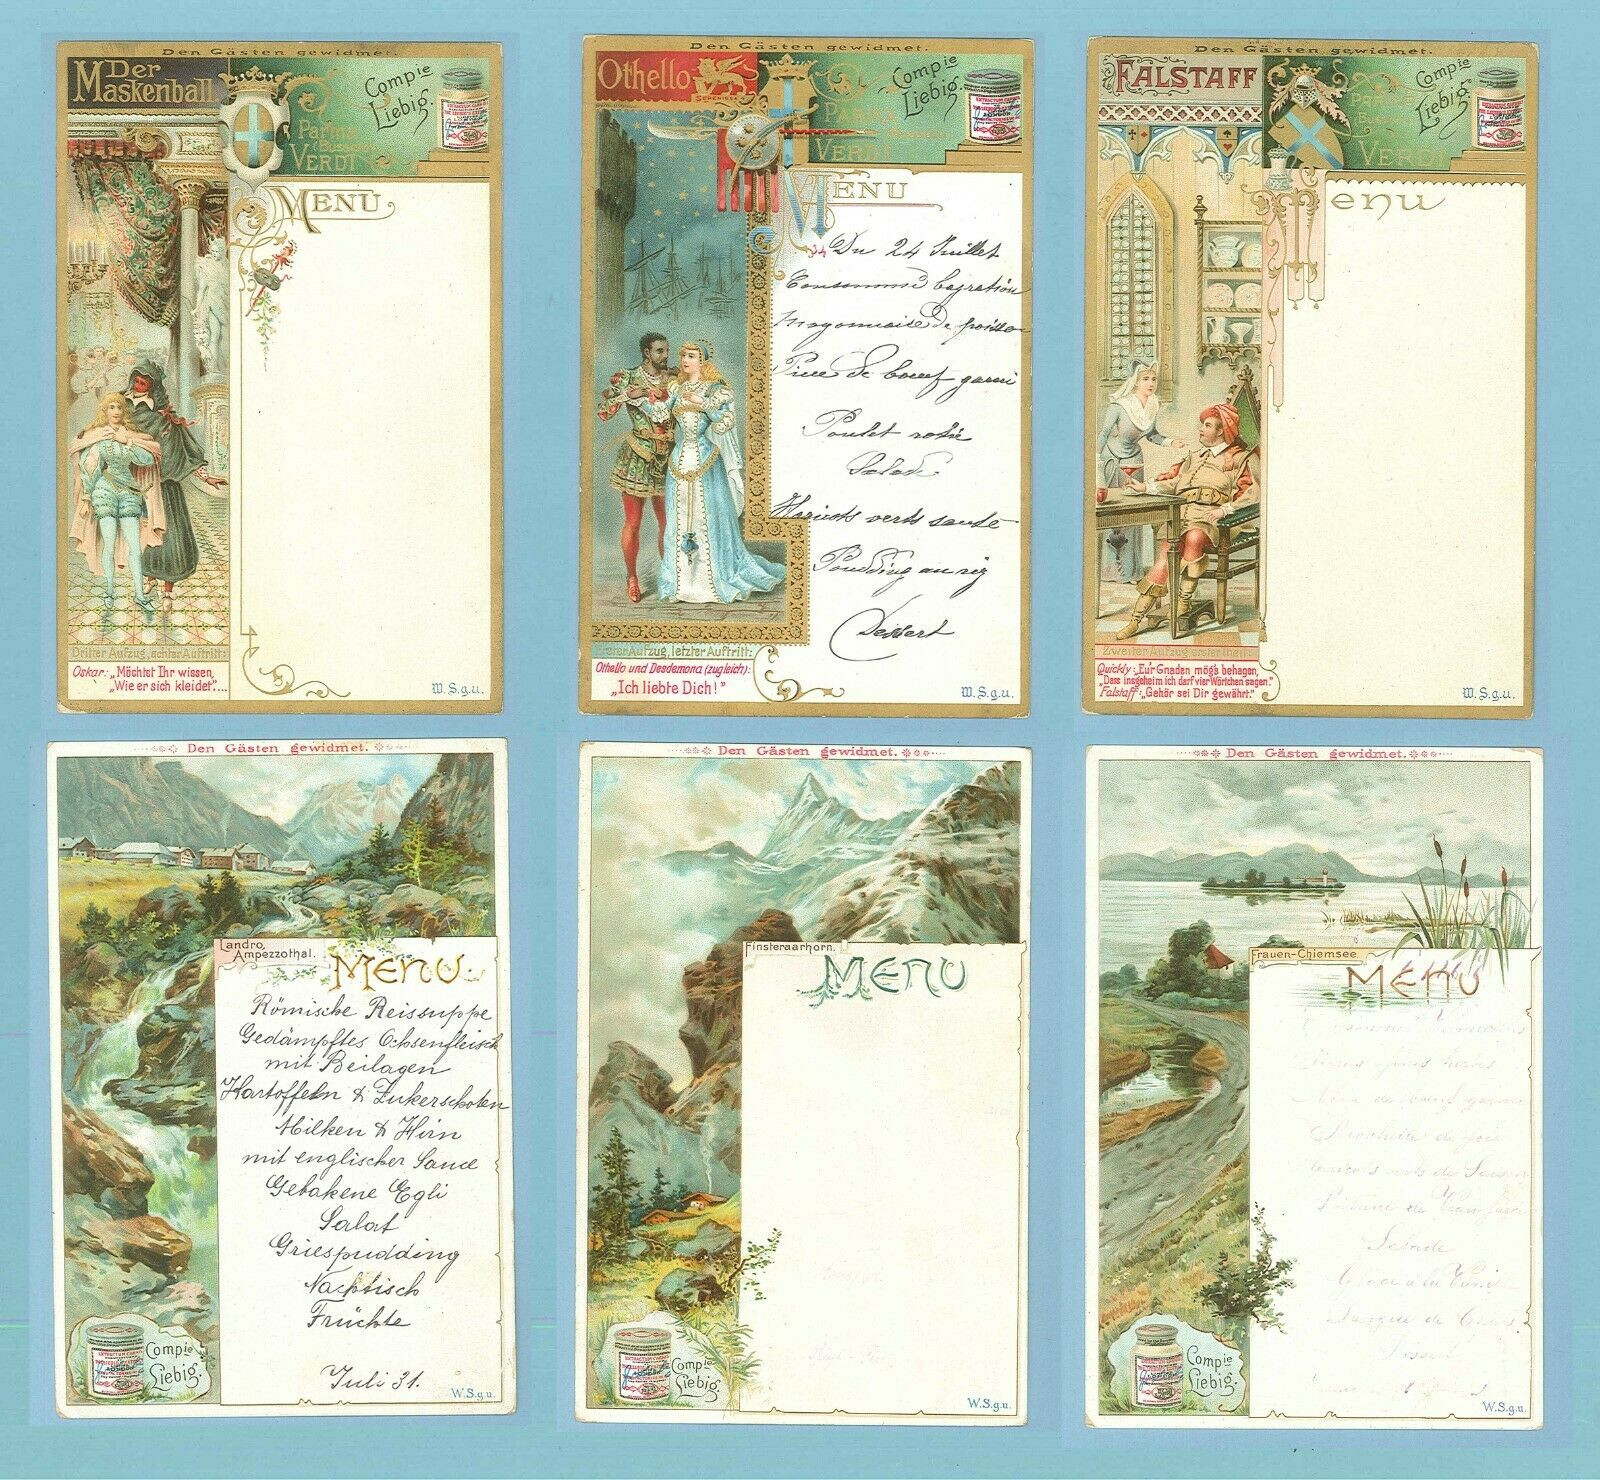 Den Gästen gewidmet.
Der
Maskenball
Parma
(Busseto)
VERDI
Comp.ie
Liebig.
MENU
Dritter Aufzug, achter Auftritt:
Oskar: „Möchtet Ihr wissen,
„Wie er sich kleidet"...
W.S.g.u.
Den Gästen gewidmet.
Othello
VERDI
Comp.ie
Liebig.
MENU
Du 24 Juillet
Consommé bagration
Mayonnaise de poisson
Pièce de bœuf garni
Poulet rotie
Salade
Haricots verts sauté
Poudding au riz
Dessert
Erster Aufzug, letzter Auftritt:
Othello und Desdemona (zugleich):
„Ich liebte Dich!"
W.S.g.u.
Den Gästen gewidmet.
FALSTAFF
VERDI
Comp.ie
Liebig.
Menu
Zweiter Aufzug erster theil:
Quickly: „Eur Gnaden mög's behagen,
„Dass insgeheim ich darf vier Wörtchen sagen."
Falstaff: „Gehör sei Dir gewährt."
W.S.g.u.
Den Gästen gewidmet.
Landro,
Ampezzothal.
MENU.
Römische Reissuppe
Gedämpftes Ochsenfleisch
mit Beilagen
Kartoffeln & Zukerschoten
Milken & Hirn
mit englischer Sauce
Gebakene Egli
Salat
Griespudding
Nachtisch
Früchte
Juli 31.
Comp.ie
Liebig.
W.S.g.u.
Den Gästen gewidmet.
Finsteraarhorn.
MENU
Comp.ie
Liebig.
W.S.g.u.
Den Gästen gewidmet.
Frauen-Chiemsee.
MENU
de bœuf garni
de foie
verts
Salade
Glace à la
Dessert
Comp.ie
Liebig.
W.S.g.u.